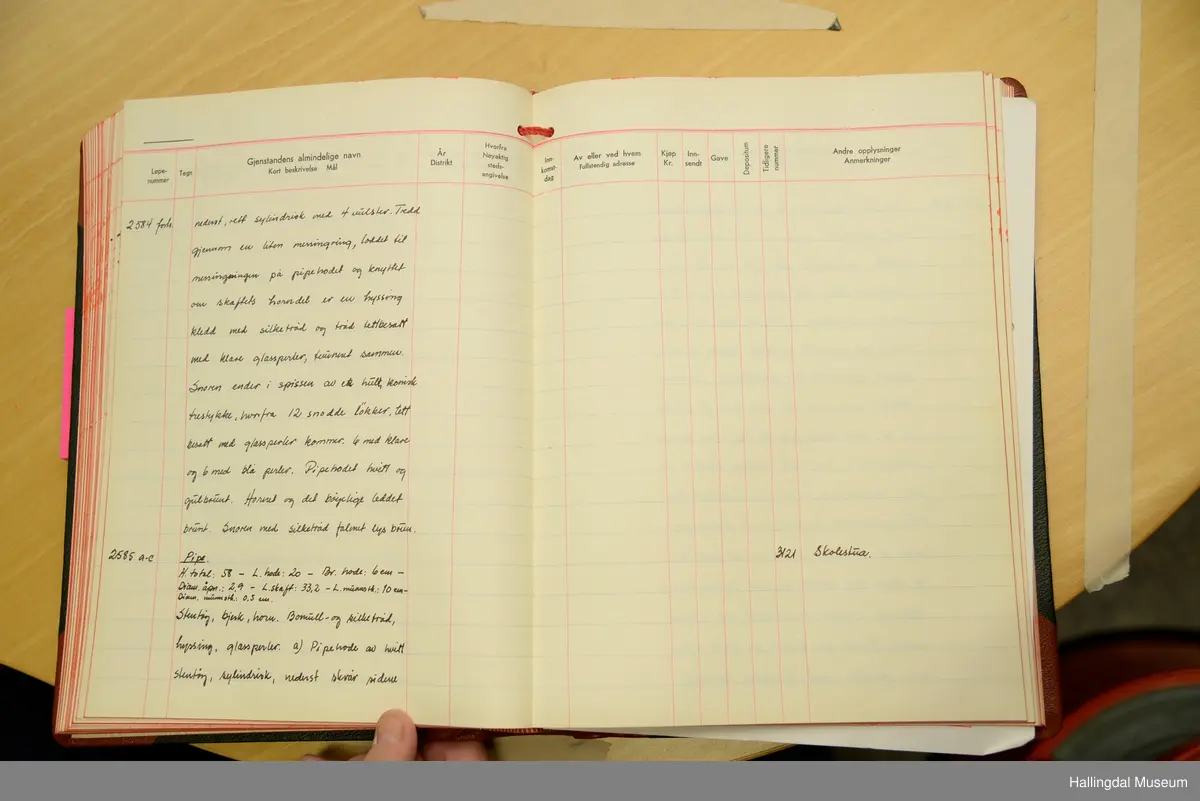 Løpe-
nummer
Tegn
Gjenstandens almindelige navn
Kort beskrivelse Mål
År
Distrikt
Hvorfra
Nøyaktig
steds-
angivelse
Inn-
komst-
dag
Av eller ved hvem
Fullstendig adresse
Kjøp
Kr.
Inn-
sendt
Gave
Depositum
Tidligere
nummer
Andre opplysninger
Anmerkninger
2584 forts. nederst, rett sylindrisk med 4 vulster. Tredd
gjennom en liten messingring, loddet til
messingringen på pipehodet og knyttet
om skaftets horndel er en hyssing
kledd med silketråd og tråd tettbesatt
med klare glassperler, tvunnet sammen.
Snoren ender i spissen av et hult, konisk
trestykke, hvorfra 12 snodde løkker, tett
besatt med glassperler kommer. 6 med klare
og 6 med blå perler. Pipehodet hvitt og
gulbrunt. Hornet og det bøyelige leddet
brunt. Snoren med silketråd falmet lys brun.
2585 a-c Pipe. 3121 Skolestua.
H. total: 58 - L. hode: 20 - Br. hode: 6 cm -
Diam. åpn.: 2,9 - L. skaft: 33,2 - L. munnstk.: 10 cm -
Diam. munnstk.: 0,5 cm.
Stentøy, bjerk, horn. Bomull- og silketråd,
hyssing, glassperler. a) Pipehode av hvitt
stentøy, sylindrisk, nederst skrår sidene
Hallingdal Museum